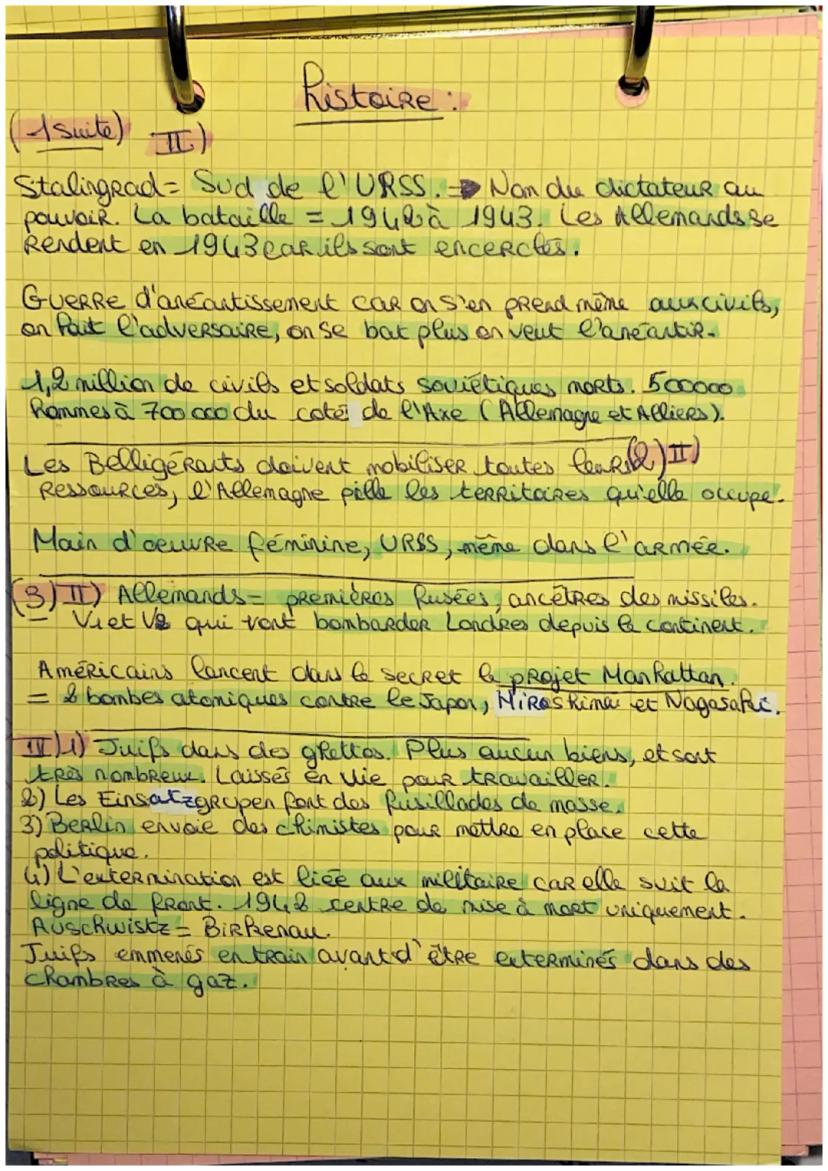 histoire :
(1 suite) II)
Stalingrad = Sud de l'URSS. → Nom du dictateur au
pouvoir. La bataille = 1942 à 1943. Les Allemands se
rendent en 1943 car ils sont encerclés.
Guerre d'anéantissement car on s'en prend même aux civils,
on hait l'adversaire, on se bat plus on veut l'anéantir.
1,2 million de civils et soldats soviétiques morts. 500000
hommes à 700 000 du coté de l'Axe (Allemagne et Alliers).
Les Belligérants doivent mobiliser toutes leurs (2) II)
ressources, l'Allemagne pille les territoires qu'elle occupe.
Main d'oeuvre féminine, URSS, même dans l'armée.
(3) II) Allemands = premières fusées, ancêtres des missiles.
V1 et V2 qui vont bombarder Londres depuis le continent.
Américains lancent dans le secret le projet Manhattan.
= 2 bombes atomiques contre le Japon, Hiroshima et Nagasaki.
III) 1) Juifs dans des ghettos. Plus aucun biens, et sont
très nombreux. Laissés en vie pour travailler.
2) Les Einsatzgrupen font des fusillades de masse.
3) Berlin envoie des chimistes pour mettre en place cette
politique.
4) L'extermination est liée aux militaire car elle suit la
ligne de front. 1942 centre de mise à mort uniquement.
Auschwistz = Birkenau.
Juifs emmenés en train avant d'être exterminés dans des
chambres à gaz.